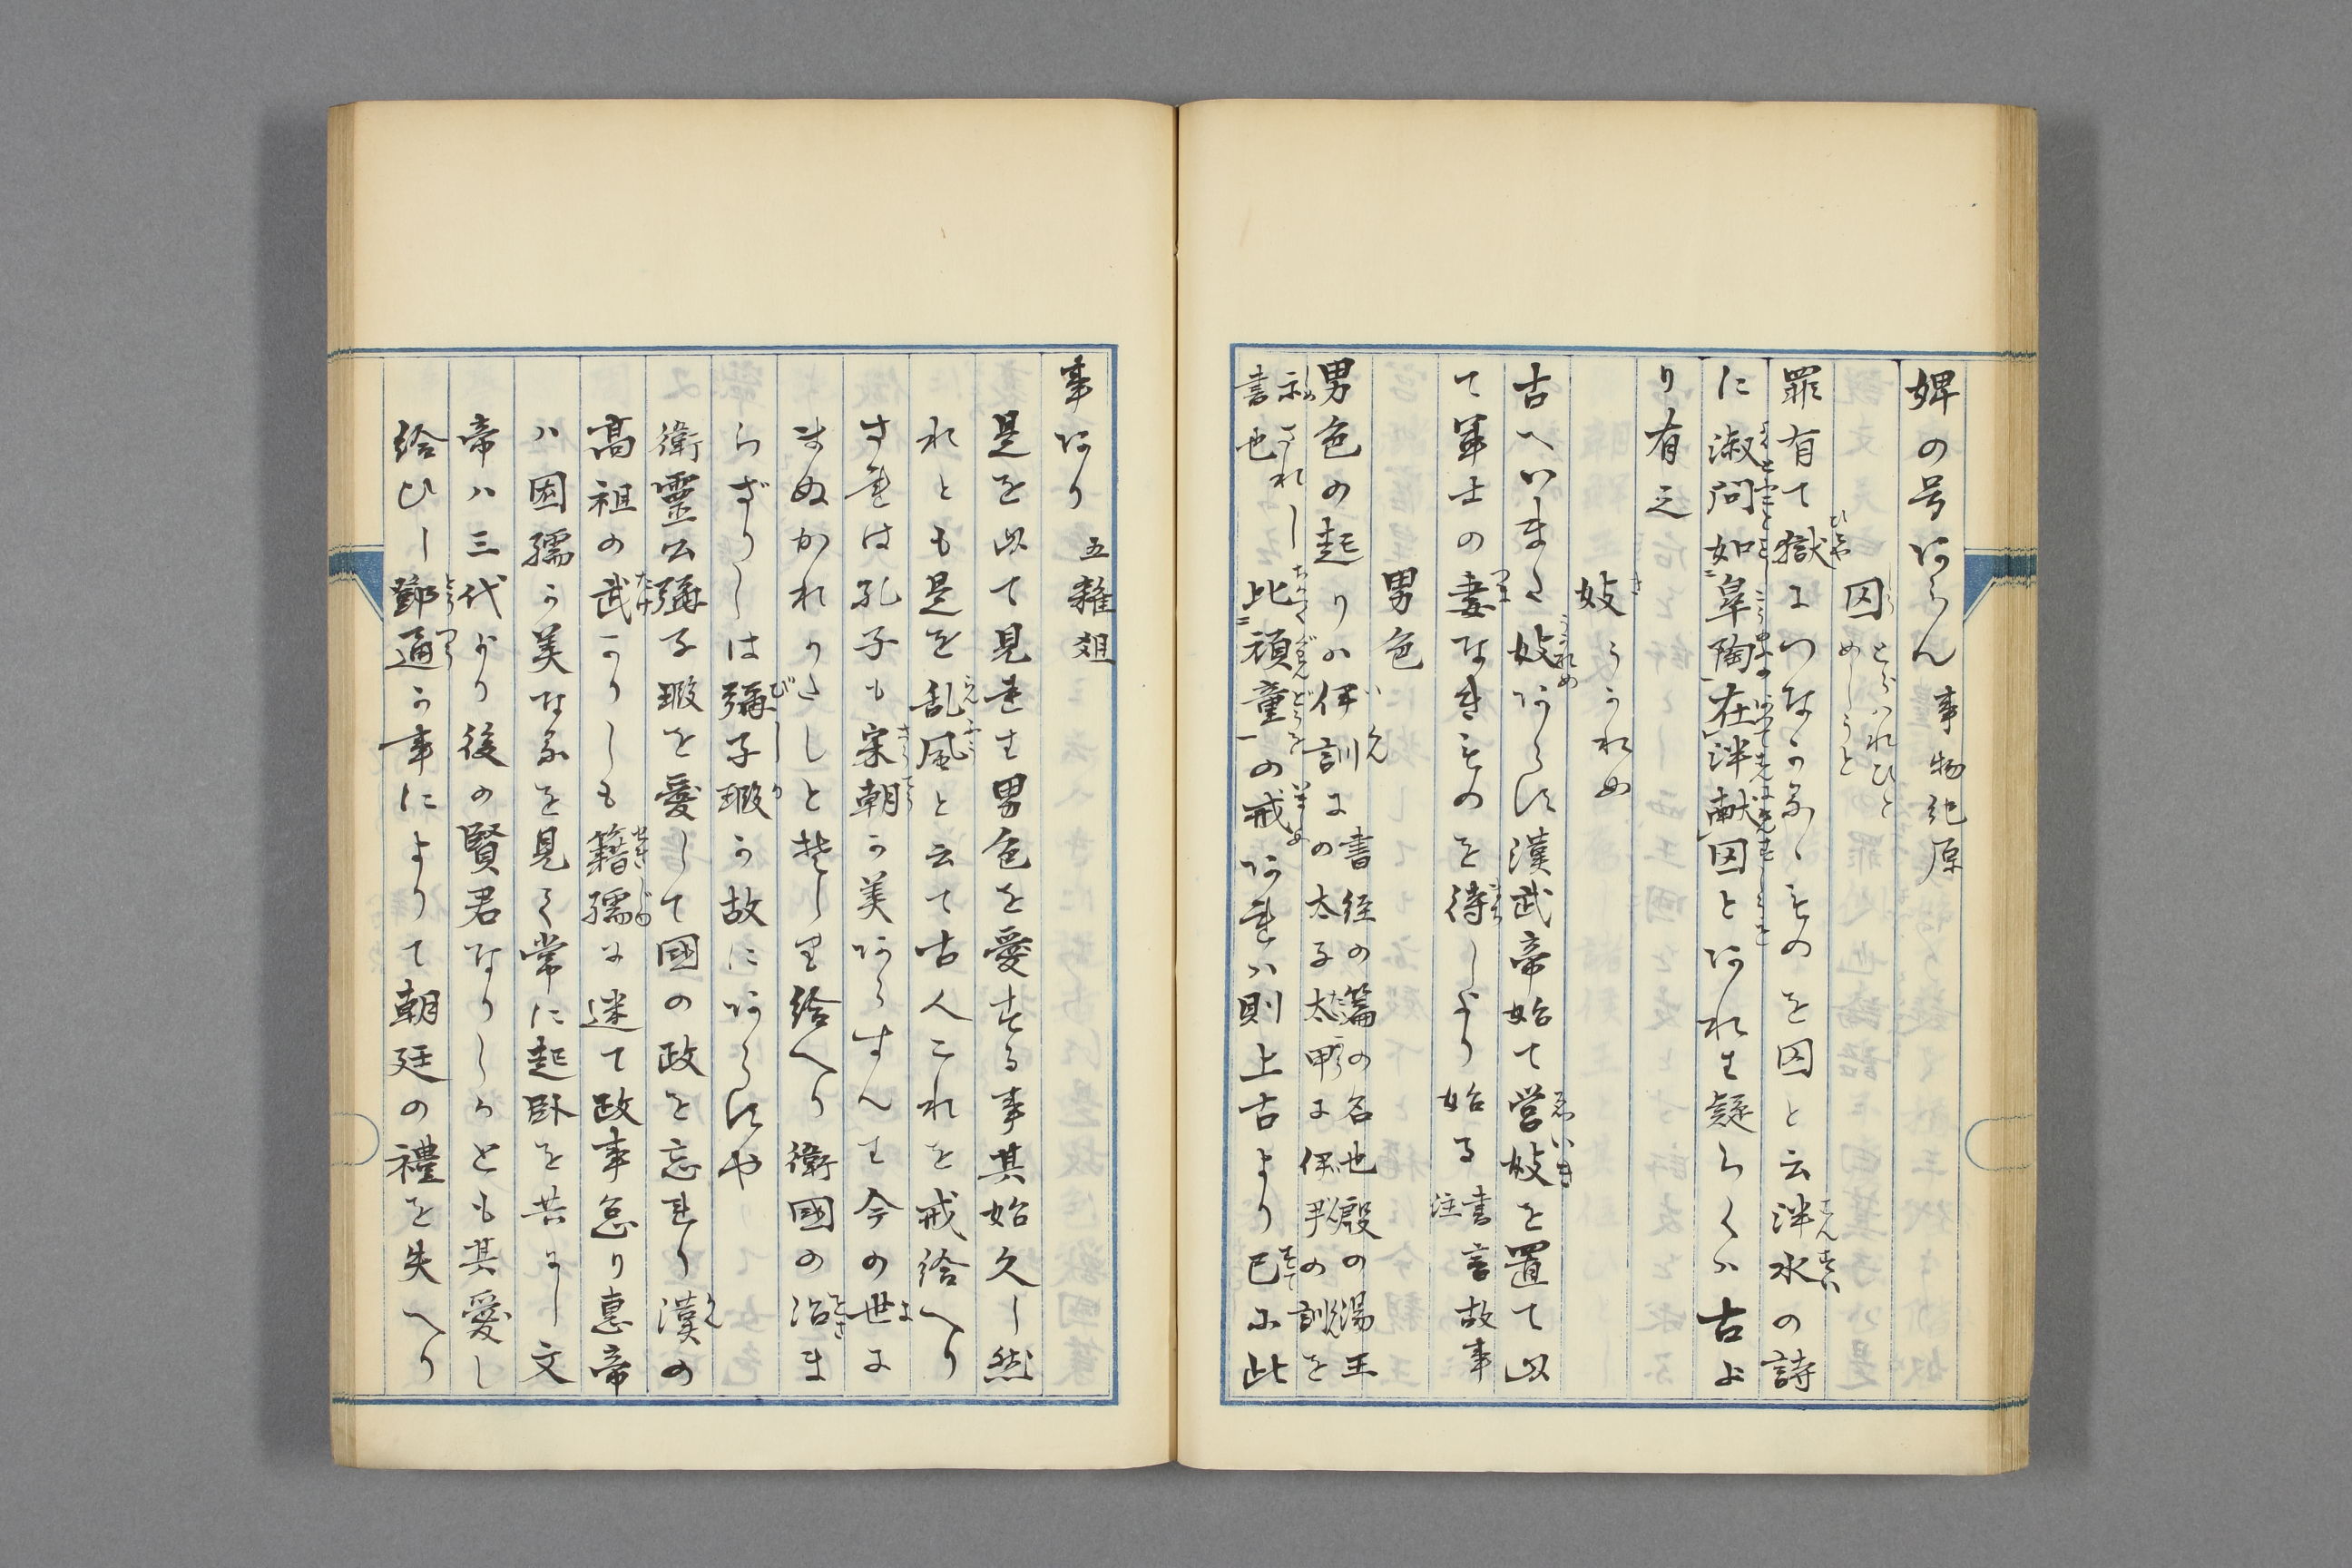 婢の号あらん 事物紀原
囚 とらハれひと めしうと
罪有て獄につながるゝものを囚と云泮水の詩
に淑問如皐陶在泮献囚とあれは疑らくハ古よ
り有之
妓 うかれめ
古へハいまた妓あらす漢武帝始て営妓を置て以
て軍士の妻なきものを待しより始る 書言故事注
男色
男色の起りハ伊訓に 書経の篇の名也殷の湯王の太子太甲に伊尹の訓を示
書也 されし 比頑童の戒あれハ則上古より已に此
事あり 五雜爼
是を以て見れは男色を愛する事其始久し然
れとも是を乱風と云て古人これを戒給へり
されは孔子も宋朝か美あらすんは今の世に
まぬかれかたしと楚しり給へり衛國の治ま
らざりしは彌子瑕か故にあらすや
衛靈公彌子瑕を愛して國の政を忘れり漢の
髙祖の武かりしも籍孺に迷て政事怠り惠帝
ハ閎孺か美なるを見て常に起臥を共にし文
帝ハ三代より後の賢君なりしかとも其愛し
給ひし鄧通か事によりて朝廷の禮を失へり